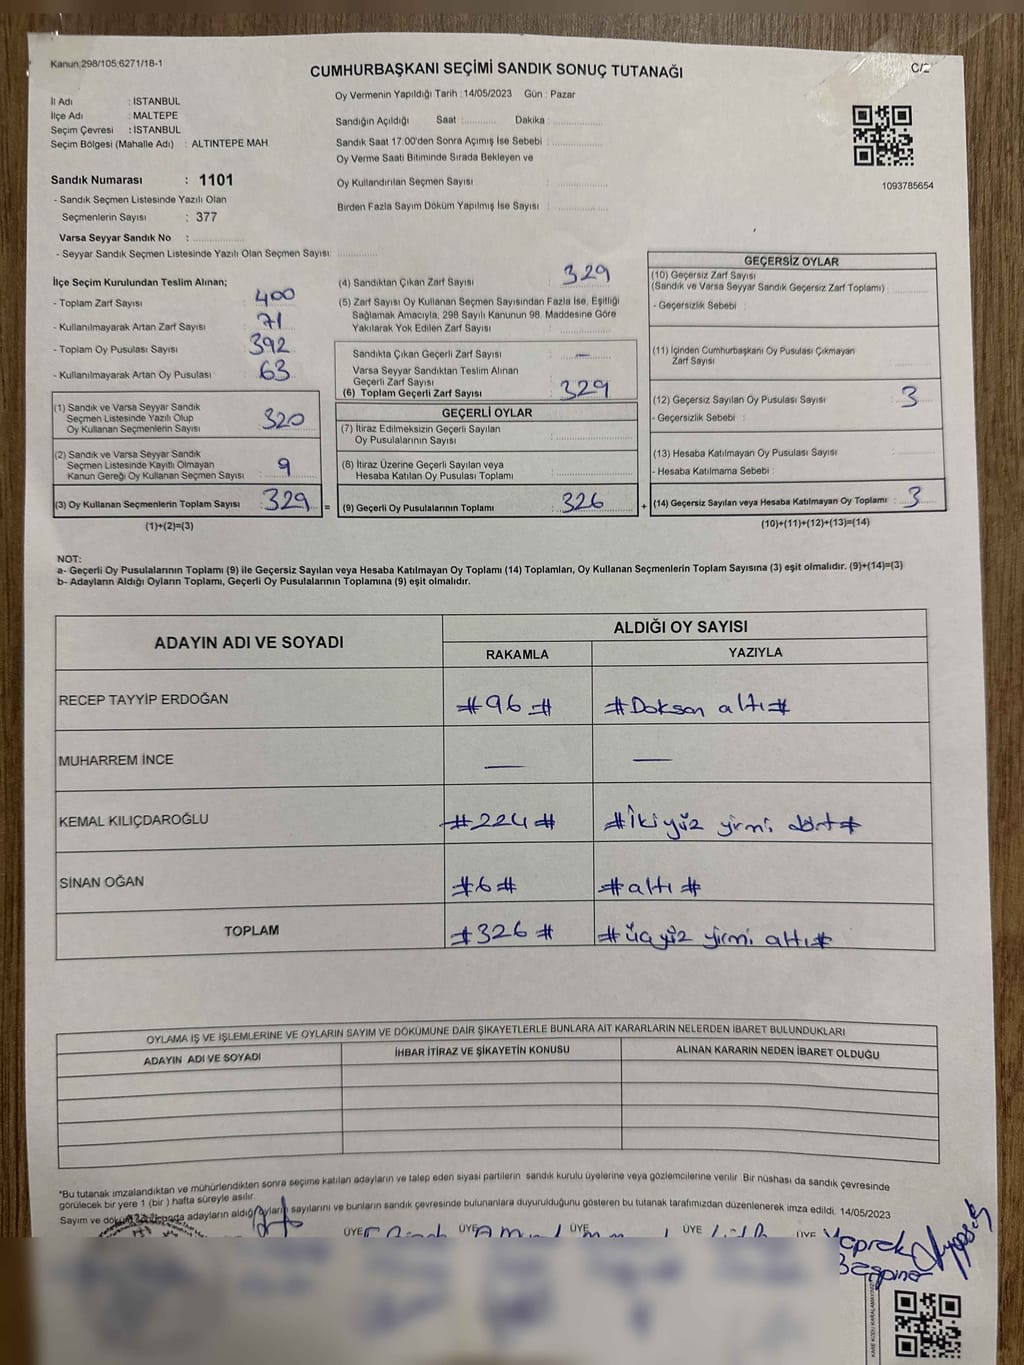 Kanun:298/105;6271/18-1
CUMHURBAŞKANI SEÇİMİ SANDIK SONUÇ TUTANAĞI
C/2
İl Adı : İSTANBUL
İlçe Adı : MALTEPE
Seçim Çevresi : İSTANBUL
Seçim Bölgesi (Mahalle Adı) : ALTINTEPE MAH.
Sandık Numarası : 1101
- Sandık Seçmen Listesinde Yazılı Olan
Seçmenlerin Sayısı : 377
Varsa Seyyar Sandık No :
- Seyyar Sandık Seçmen Listesinde Yazılı Olan Seçmen Sayısı:
Oy Vermenin Yapıldığı Tarih : 14/05/2023 Gün : Pazar
Sandığın Açıldığı Saat : Dakika :
Sandık Saat 17:00'den Sonra Açımış İse Sebebi :
Oy Verme Saati Bitiminde Sırada Bekleyen ve
Oy Kullandırılan Seçmen Sayısı :
Birden Fazla Sayım Döküm Yapılmış İse Sayısı :
1093785654
İlçe Seçim Kurulundan Teslim Alınan;
- Toplam Zarf Sayısı : 400
- Kullanılmayarak Artan Zarf Sayısı : 71
- Toplam Oy Pusulası Sayısı : 392
- Kullanılmayarak Artan Oy Pusulası : 63
(1) Sandık ve Varsa Seyyar Sandık
Seçmen Listesinde Yazılı Olup
Oy Kullanan Seçmenlerin Sayısı : 320
(2) Sandık ve Varsa Seyyar Sandık
Seçmen Listesinde Kayıtlı Olmayan
Kanun Gereği Oy Kullanan Seçmen Sayısı : 9
(3) Oy Kullanan Seçmenlerin Toplam Sayısı : 329 =
(1)+(2)=(3)
(4) Sandıktan Çıkan Zarf Sayısı : 329
(5) Zarf Sayısı Oy Kullanan Seçmen Sayısından Fazla İse, Eşitliği
Sağlamak Amacıyla, 298 Sayılı Kanunun 98. Maddesine Göre
Yakılarak Yok Edilen Zarf Sayısı :
Sandıkta Çıkan Geçerli Zarf Sayısı : —
Varsa Seyyar Sandıktan Teslim Alınan
Geçerli Zarf Sayısı :
(6) Toplam Geçerli Zarf Sayısı : 329
GEÇERLİ OYLAR
(7) İtiraz Edilmeksizin Geçerli Sayılan
Oy Pusulalarının Sayısı :
(8) İtiraz Üzerine Geçerli Sayılan veya
Hesaba Katılan Oy Pusulası Toplamı :
(9) Geçerli Oy Pusulalarının Toplamı : 326 +
GEÇERSİZ OYLAR
(10) Geçersiz Zarf Sayısı
(Sandık ve Varsa Seyyar Sandık Geçersiz Zarf Toplamı) :
- Geçersizlik Sebebi :
(11) İçinden Cumhurbaşkanı Oy Pusulası Çıkmayan
Zarf Sayısı :
(12) Geçersiz Sayılan Oy Pusulası Sayısı : 3
- Geçersizlik Sebebi :
(13) Hesaba Katılmayan Oy Pusulası Sayısı :
- Hesaba Katılmama Sebebi :
(14) Geçersiz Sayılan veya Hesaba Katılmayan Oy Toplamı : 3
(10)+(11)+(12)+(13)=(14)
NOT:
a- Geçerli Oy Pusulalarının Toplamı (9) ile Geçersiz Sayılan veya Hesaba Katılmayan Oy Toplamı (14) Toplamları, Oy Kullanan Seçmenlerin Toplam Sayısına (3) eşit olmalıdır. (9)+(14)=(3)
b- Adayların Aldığı Oyların Toplamı, Geçerli Oy Pusulalarının Toplamına (9) eşit olmalıdır.
ADAYIN ADI VE SOYADI ALDIĞI OY SAYISI
RAKAMLA YAZIYLA
RECEP TAYYİP ERDOĞAN #96# #Doksan altı#
MUHARREM İNCE — —
KEMAL KILIÇDAROĞLU #224# #İkiyüz yirmi dört#
SİNAN OĞAN #6# #altı#
TOPLAM #326# #üçyüz yirmi altı#
OYLAMA İŞ VE İŞLEMLERİNE VE OYLARIN SAYIM VE DÖKÜMÜNE DAİR ŞİKAYETLERLE BUNLARA AİT KARARLARIN NELERDEN İBARET BULUNDUKLARI
ADAYIN ADI VE SOYADI İHBAR İTİRAZ VE ŞİKAYETİN KONUSU ALINAN KARARIN NEDEN İBARET OLDUĞU
*Bu tutanak imzalandıktan ve mühürlendikten sonra seçime katılan adayların ve talep eden siyasi partilerin sandık kurulu üyelerine veya gözlemcilerine verilir. Bir nüshası da sandık çevresinde
görülecek bir yere 1 (bir ) hafta süreyle asılır.
Sayım ve döküm adayların aldığı oyların sayılarını ve bunların sandık çevresinde bulunanlara duyurulduğunu gösteren bu tutanak tarafımızdan düzenlenerek imza edildi. 14/05/2023
ÜYE ÜYE ÜYE ÜYE ÜYE
Yaprak